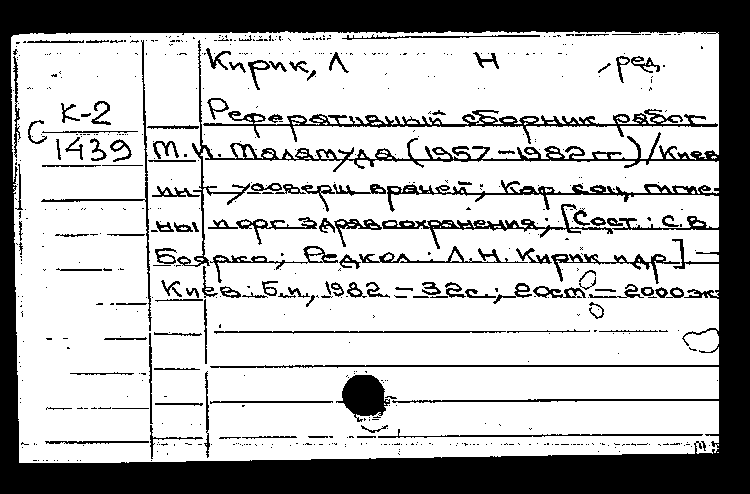 Кирик, Л Н , ред.
К-2
С 1439
Реферативный сборник работ
М.И. Маламуда (1957-1982гг)/Киев
ин-т усоверш врачей; Кар. соц. гигие-
ны и орг. здравоохранения; [Сост.: С.В.
Боярко; Редкол.: Л.Н. Кирик и др] —
Киев: Б.и., 1982. - 32с.; 20см. - 2000эк